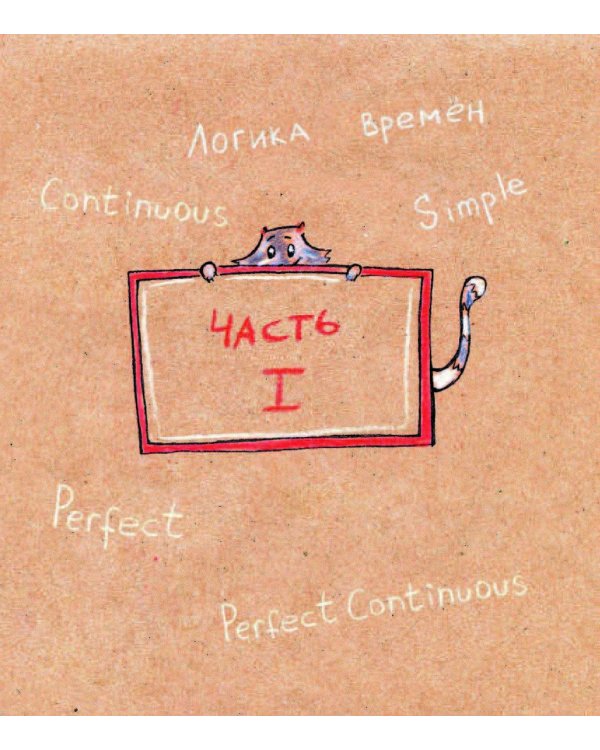 Логика времён
Continuous
Simple
ЧАСТЬ
I
Perfect
Perfect Continuous